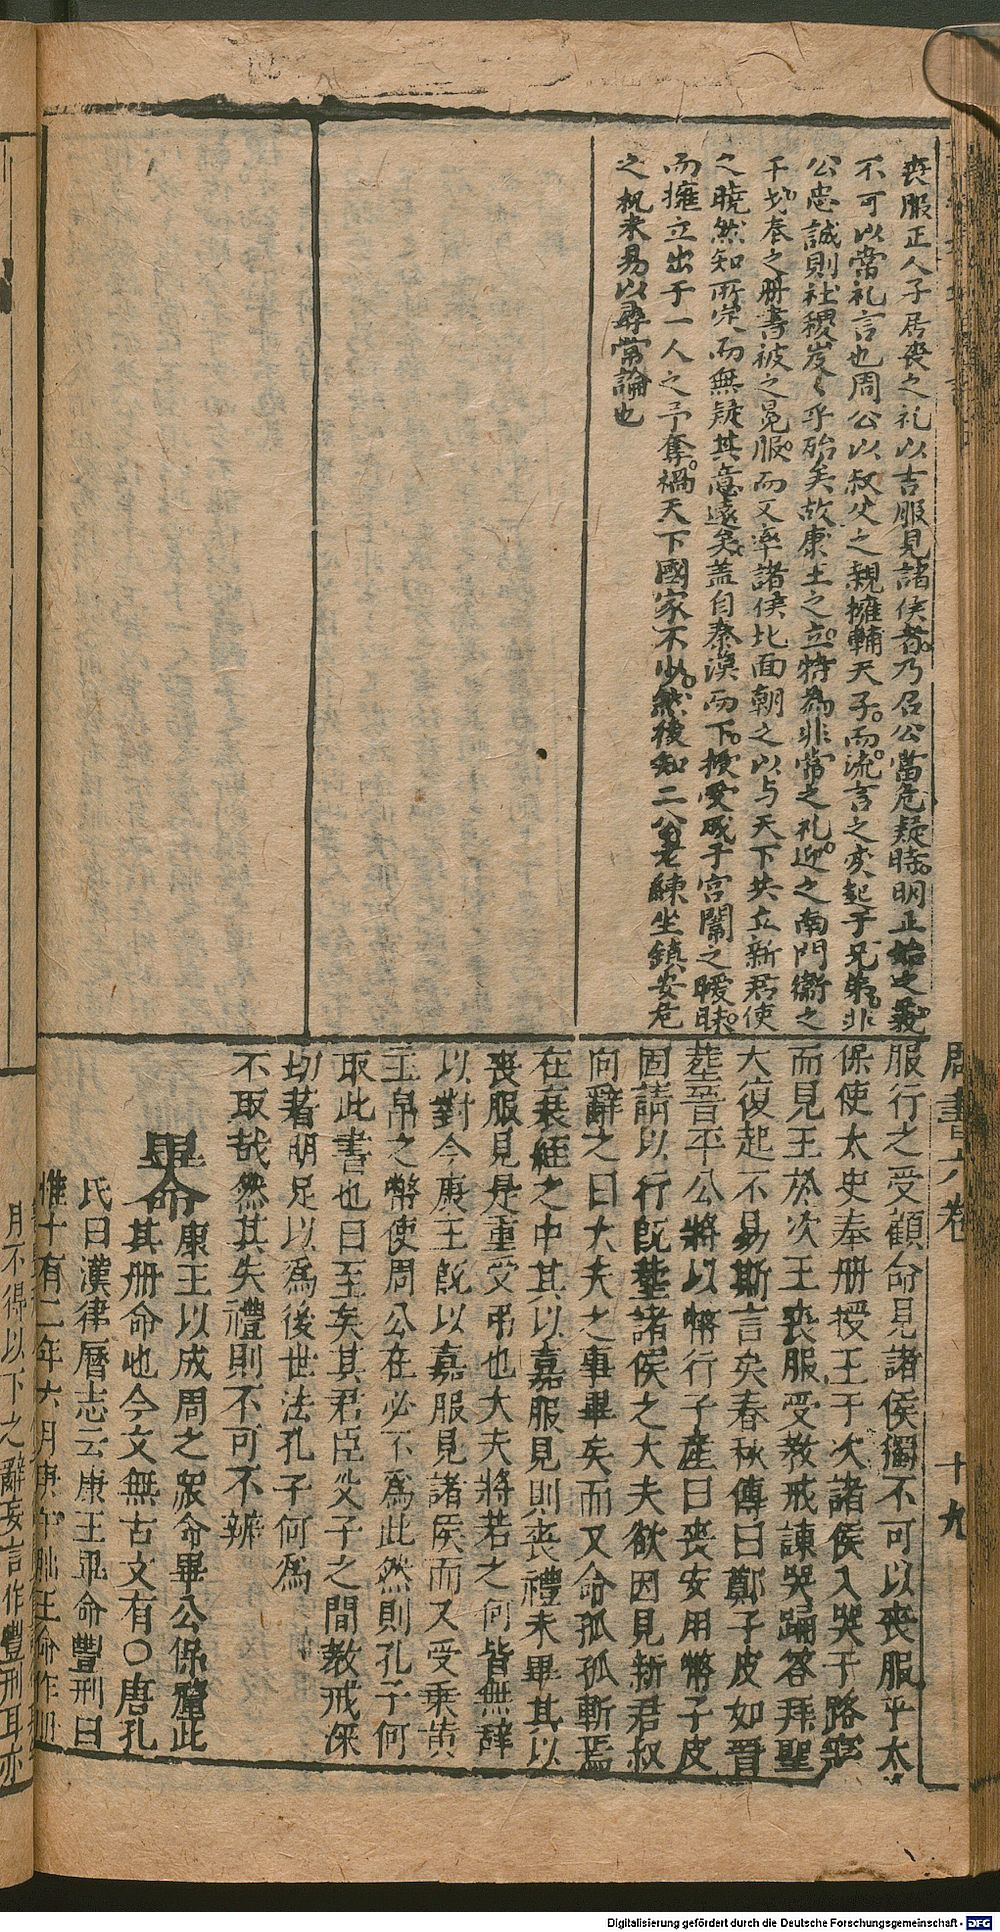 喪服正人子居喪之礼以吉服見諸侯者乃召公當危疑時明正始之義
不可以常礼言也周公以叔父之親擁輔天子而流言之变起于兄弟非
公忠誠則社稷岌〻乎殆矣故康王之立特為非常之礼迎之南門衛之
干戈奉之册書被之冕服而又率諸侯北面朝之以与天下共立新君使
之曉然知所定而無疑其意遠矣盖自秦漢而下授受或于宮闈之曖昧
而擁立出于一人之予奪禍天下國家不少然後知二公老練坐鎮安危
之机未易以尋常論也
周書六卷 十九
服行之受顧命見諸侯獨不可以喪服乎太
保使太史奉册授王于次諸侯入哭于路寢
而見王於次王喪服受教戒諫哭踊答拜聖
大復起不易斯言矣春秋傳曰鄭子皮如晉
葬晉平公將以幣行子產曰喪安用幣子皮
固請以行旣葬諸侯之大夫欲因見新君叔
向辭之曰大夫之事畢矣而又命孤孤斬焉
在衰絰之中其以嘉服見則喪禮未畢其以
喪服見是重受弔也大夫將若之何皆無辭
以對今康王旣以嘉服見諸侯而又受乘黄
玉帛之幣使周公在必不爲此然則孔子何
取此書也曰至矣其君臣父子之間教戒深
切著明足以爲後世法孔子何爲
不取哉然其失禮則不可不辨
畢命 康王以成周之衆命畢公保釐此
其册命也今文無古文有○唐孔
氏曰漢律曆志云康王畢命豐刑曰
惟十有二年六月庚午朏王命作册
月不得以下之辭妄言作豐刑耳亦
Digitalisierung gefördert durch die Deutsche Forschungsgemeinschaft - DFG